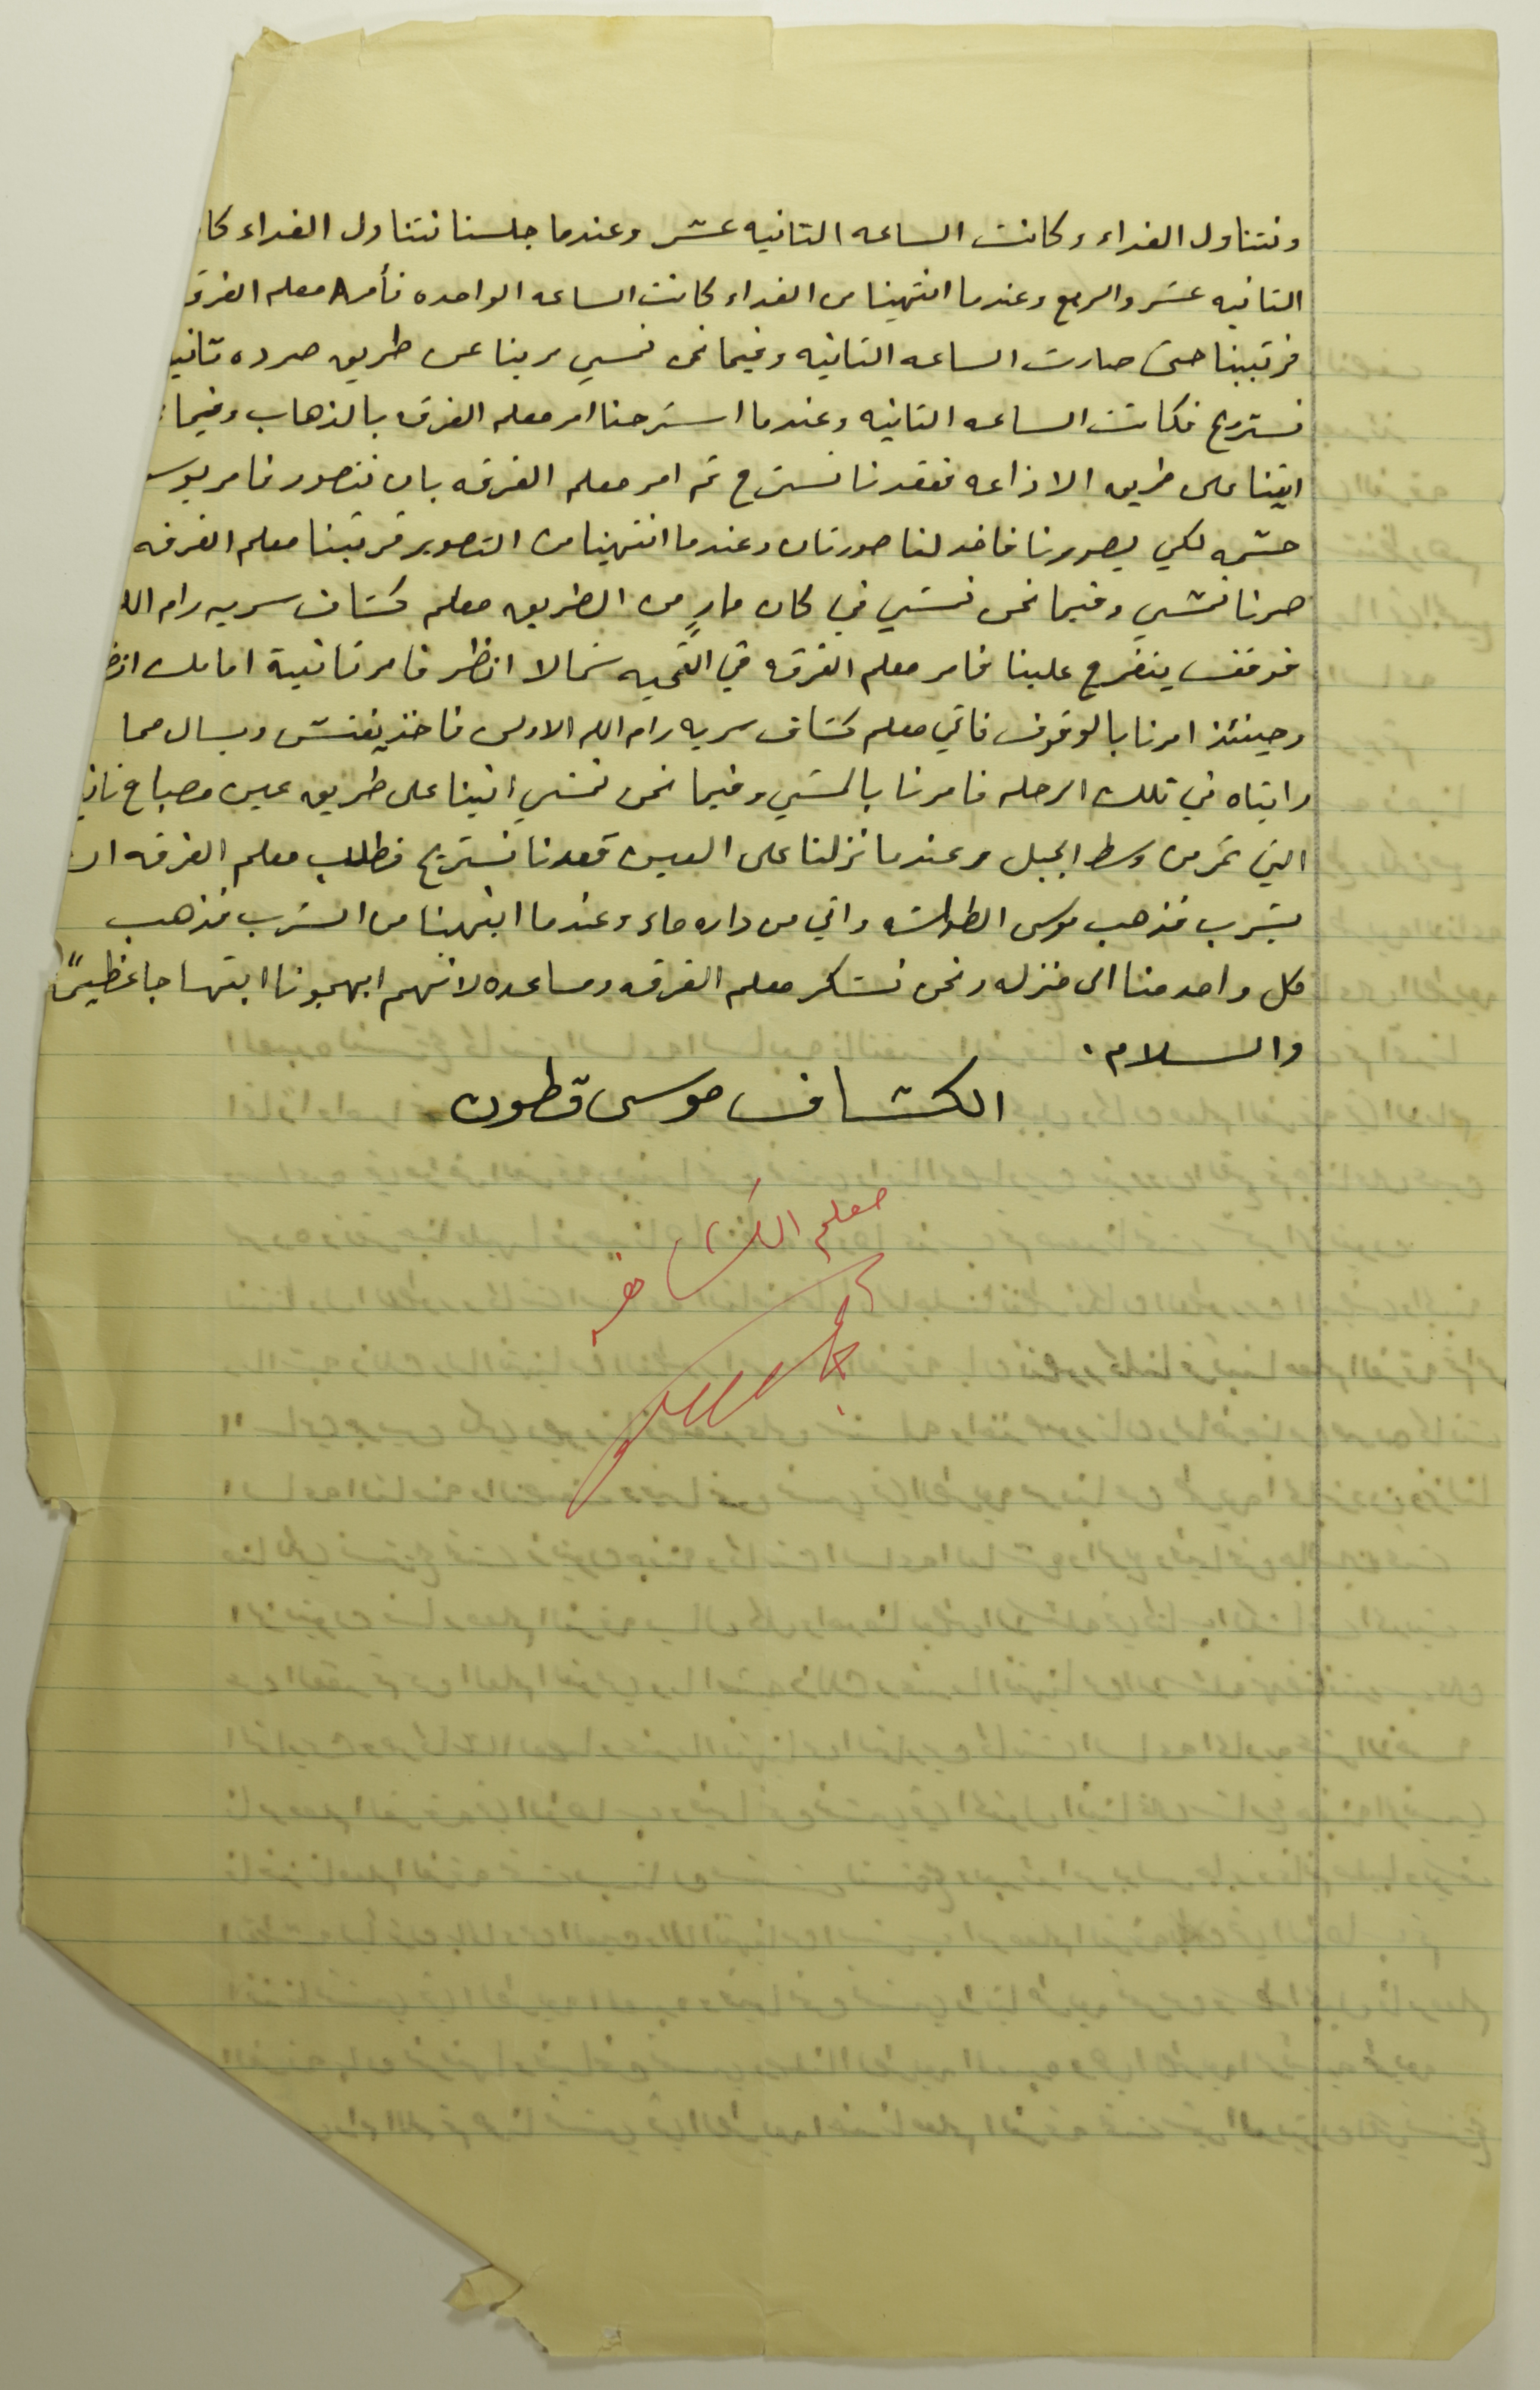 ونتناول الغداء وكانت الساعه الثانيه عشر وعندما جلسنا نتناول الغداء كا
الثانيه عشر والربع وعندما انتهينا من الغداء كانت الساعه الواحده فأمر معلم الفرق
فرتبنا حتى صارت الساعه الثانيه وفيما نحن نمشي مرينا عن طريق صرده ثاني
نستريح فكانت الساعه الثانيه وعندما استرحنا امر معلم الفرق بالذهاب وفيما
اتينا على طريق الاذاعه فقعدنا نسترح ثم امر معلم الفرقه بان نتصور فامر يوس
حشمه لكي يصورنا فاخذ لنا صورتان وعندما انتهينا من التصوير فرتبنا معلم الفرقه
صرنا نمشي وفيما نحن نمشي في كان مارٍ من الطريق معلم كشاف سريه رام الل
فوقف يتفرج علينا فامر معلم الفرقه في التحيه شمالا انظر فامر ثانية امامك انظ
وحينئذ امرنا بالوقوف فاتي معلم كشاف سريه رام الله الاولى فاخذ يفتش ويسال مما
رايناه في تلك الرحله فامرنا بالمشي وفيما نحن نمشي اتينا على طريق عين مصباح
التي تمر من وسط الجبل وعندما نزلنا على العين قعدنا نستريح فطلب معلم الفرقه ان
يشرب فذهب موسى الطواشه واتي من داره ماء وعندما انتهينا من الشرب فذهب
كل واحد منا الى منزله ونحن نشكر معلم الفرقه ومساعده لانهم ابهجونا ابتهاجا عظيمًا
والسلام .
الكشاف موسى قطون
معلم الكشافه